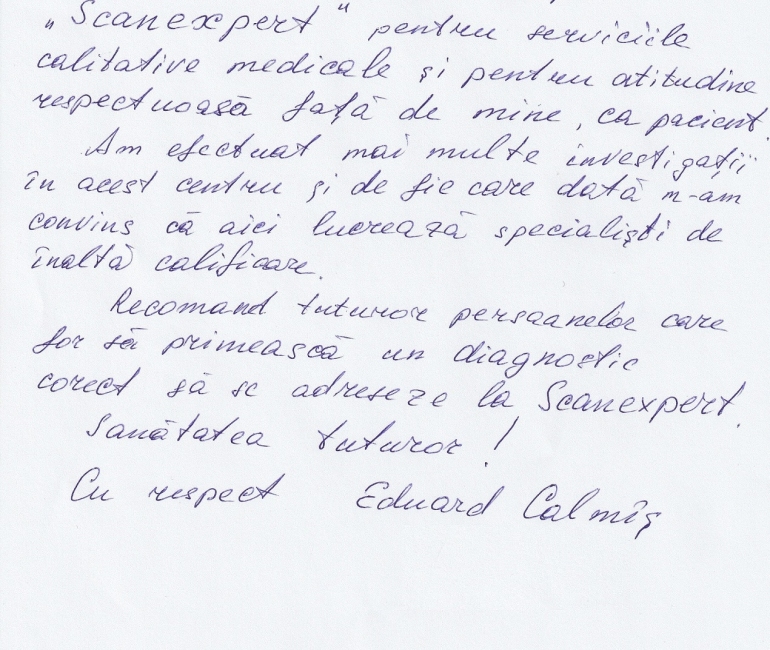 „Scanexpert" pentru serviciile
calitative medicale și pentru atitudine
respectuoasă față de mine, ca pacient.
Am efectuat mai multe investigații
în acest centru și de fie care dată m-am
convins că aici lucrează specialiști de
înaltă calificare.
Recomand tuturor persoanelor care
for să primească un diagnostic
corect să se adreseze la Scanexpert.
Sănătatea tuturor!
Cu respect Eduard Calmîș